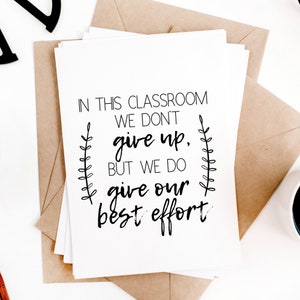 IN THIS CLASSROOM
WE DON'T
give up,
BUT WE DO
give our
best effort